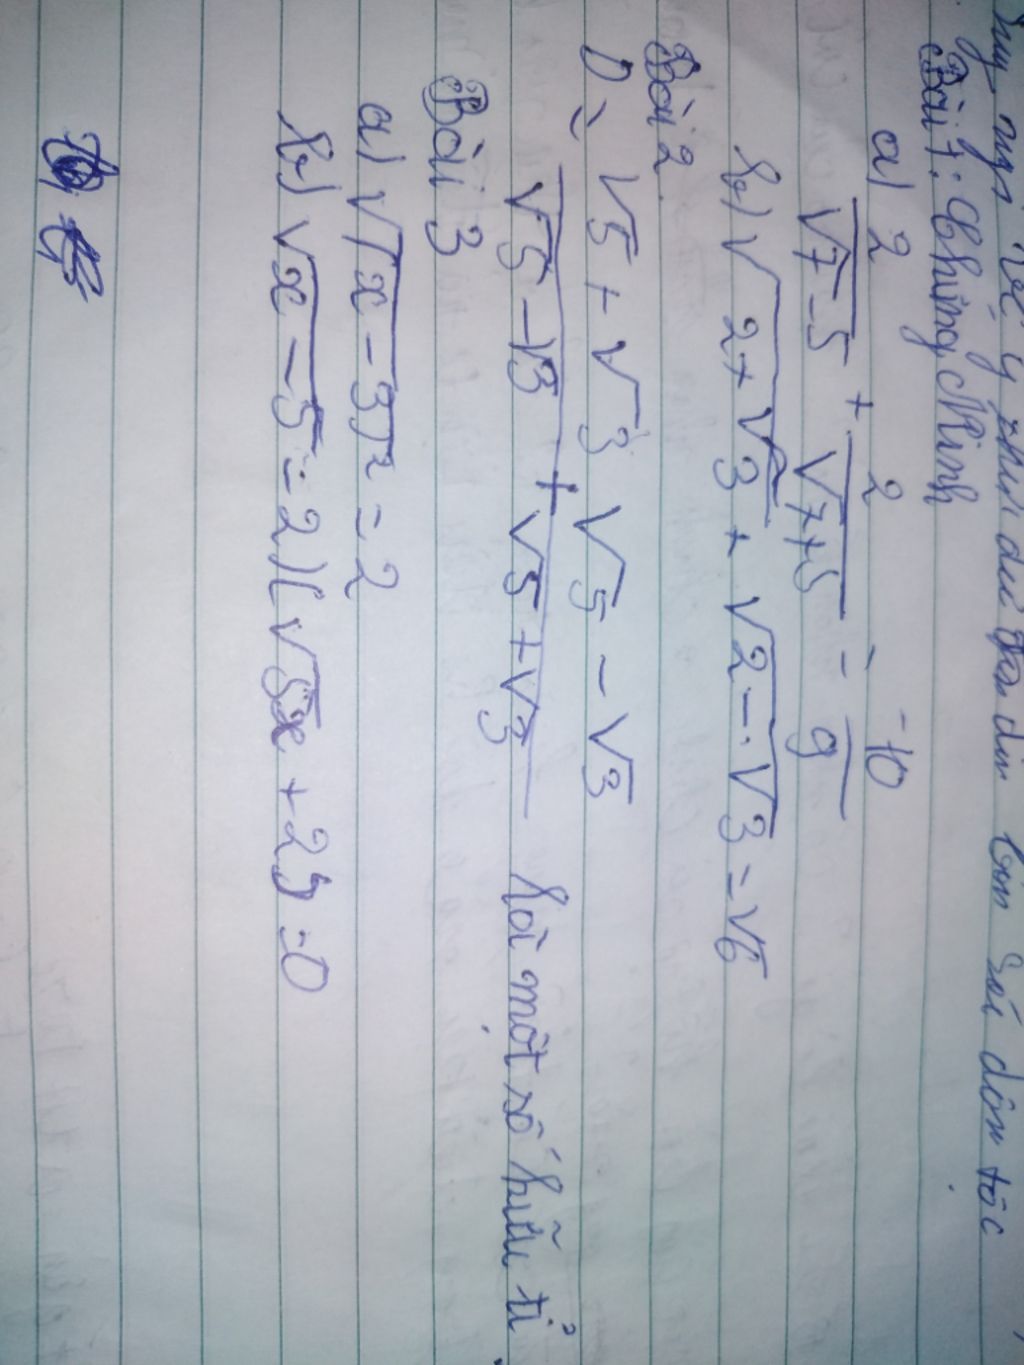 Bài 1: Chứng Minh
a) 2/(√7-5) + 2/(√7+5) = -10/9
b) √(2+√3) + √(2-√3) = √6
Bài 2
D = (√5+√3)/(√5-√3) + (√5-√3)/(√5+√3) là một số hữu tỉ
Bài 3
a) √(x-3)² = 2
b) √x-5=2)(√5x+2)=0